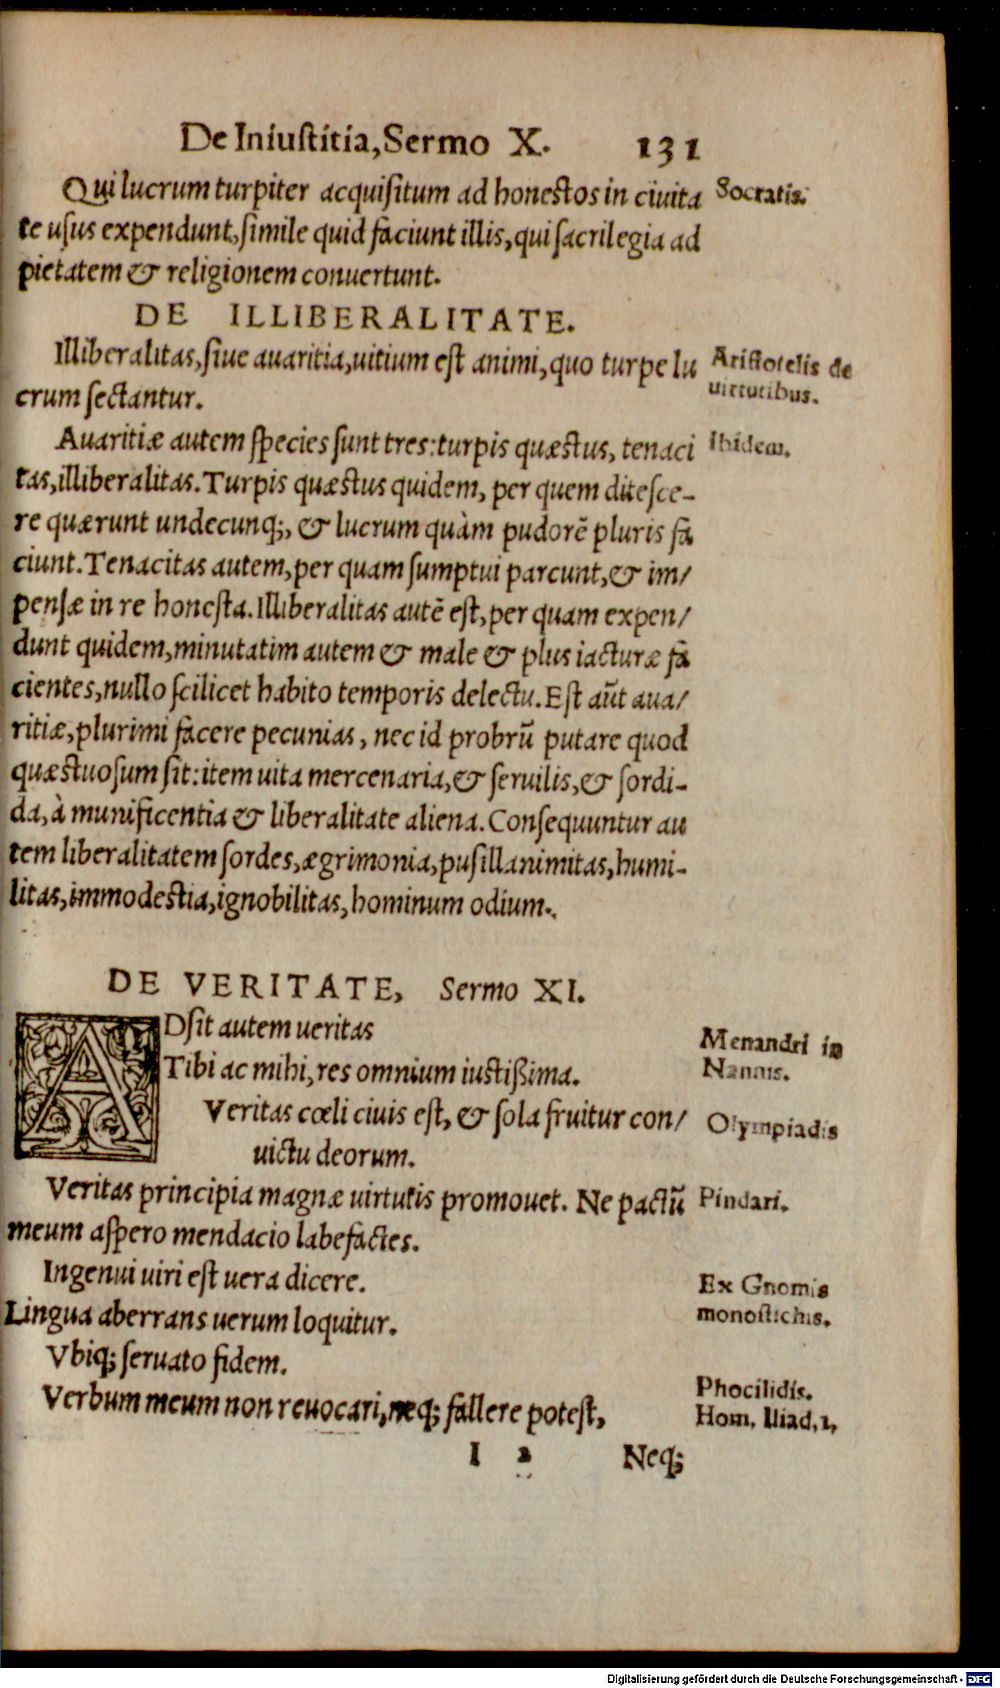 De Iniustitia, Sermo X. 131
Qui lucrum turpiter acquiſitum ad honeſtos in ciuita
te uſus expendunt, ſimile quid faciunt illis, qui ſacrilegia ad
pietatem & religionem conuertunt.
Socratis.
DE ILLIBERALITATE.
Illiberalitas, ſiue auaritia, uitium eſt animi, quo turpe lu
crum ſectantur.
Ariſtotelis de
uirtutibus.
Auaritiæ autem ſpecies ſunt tres: turpis quæſtus, tenaci
tas, illiberalitas. Turpis quæſtus quidem, per quem diteſce-
re quærunt undecunq;, & lucrum quàm pudorē pluris fa
ciunt. Tenacitas autem, per quam ſumptui parcunt, & im/
penſæ in re honeſta. Illiberalitas autē eſt, per quam expen/
dunt quidem, minutatim autem & male & plus iacturæ fa
cientes, nullo ſcilicet habito temporis delectu. Eſt aūt aua/
ritiæ, plurimi facere pecunias, nec id probrū putare quod
quæſtuoſum ſit: item uita mercenaria, & ſeruilis, & ſordi-
da, à munificentia & liberalitate aliena. Conſequuntur au
tem liberalitatem ſordes, ægrimonia, puſillanimitas, humi-
litas, immodeſtia, ignobilitas, hominum odium.
Ibidem.
DE VERITATE, Sermo XI.
ADſit autem ueritas
Tibi ac mihi, res omnium iuſtißima.
Menandri in
Nannis.
Veritas cœli ciuis eſt, & ſola fruitur con/
uictu deorum.
Olympiadis
Veritas principia magnæ uirtutis promouet. Ne pactū
meum aſpero mendacio labefactes.
Pindari.
Ingenui uiri eſt uera dicere.
Lingua aberrans uerum loquitur.
Ex Gnomis
monoſtichis.
Vbiq; ſeruato fidem.
Phocilidis.
Verbum meum non reuocari, neq; fallere poteſt,
Hom. Iliad, 1,
I 2 Neq;
Digitalisierung gefördert durch die Deutsche Forschungsgemeinschaft - DFG